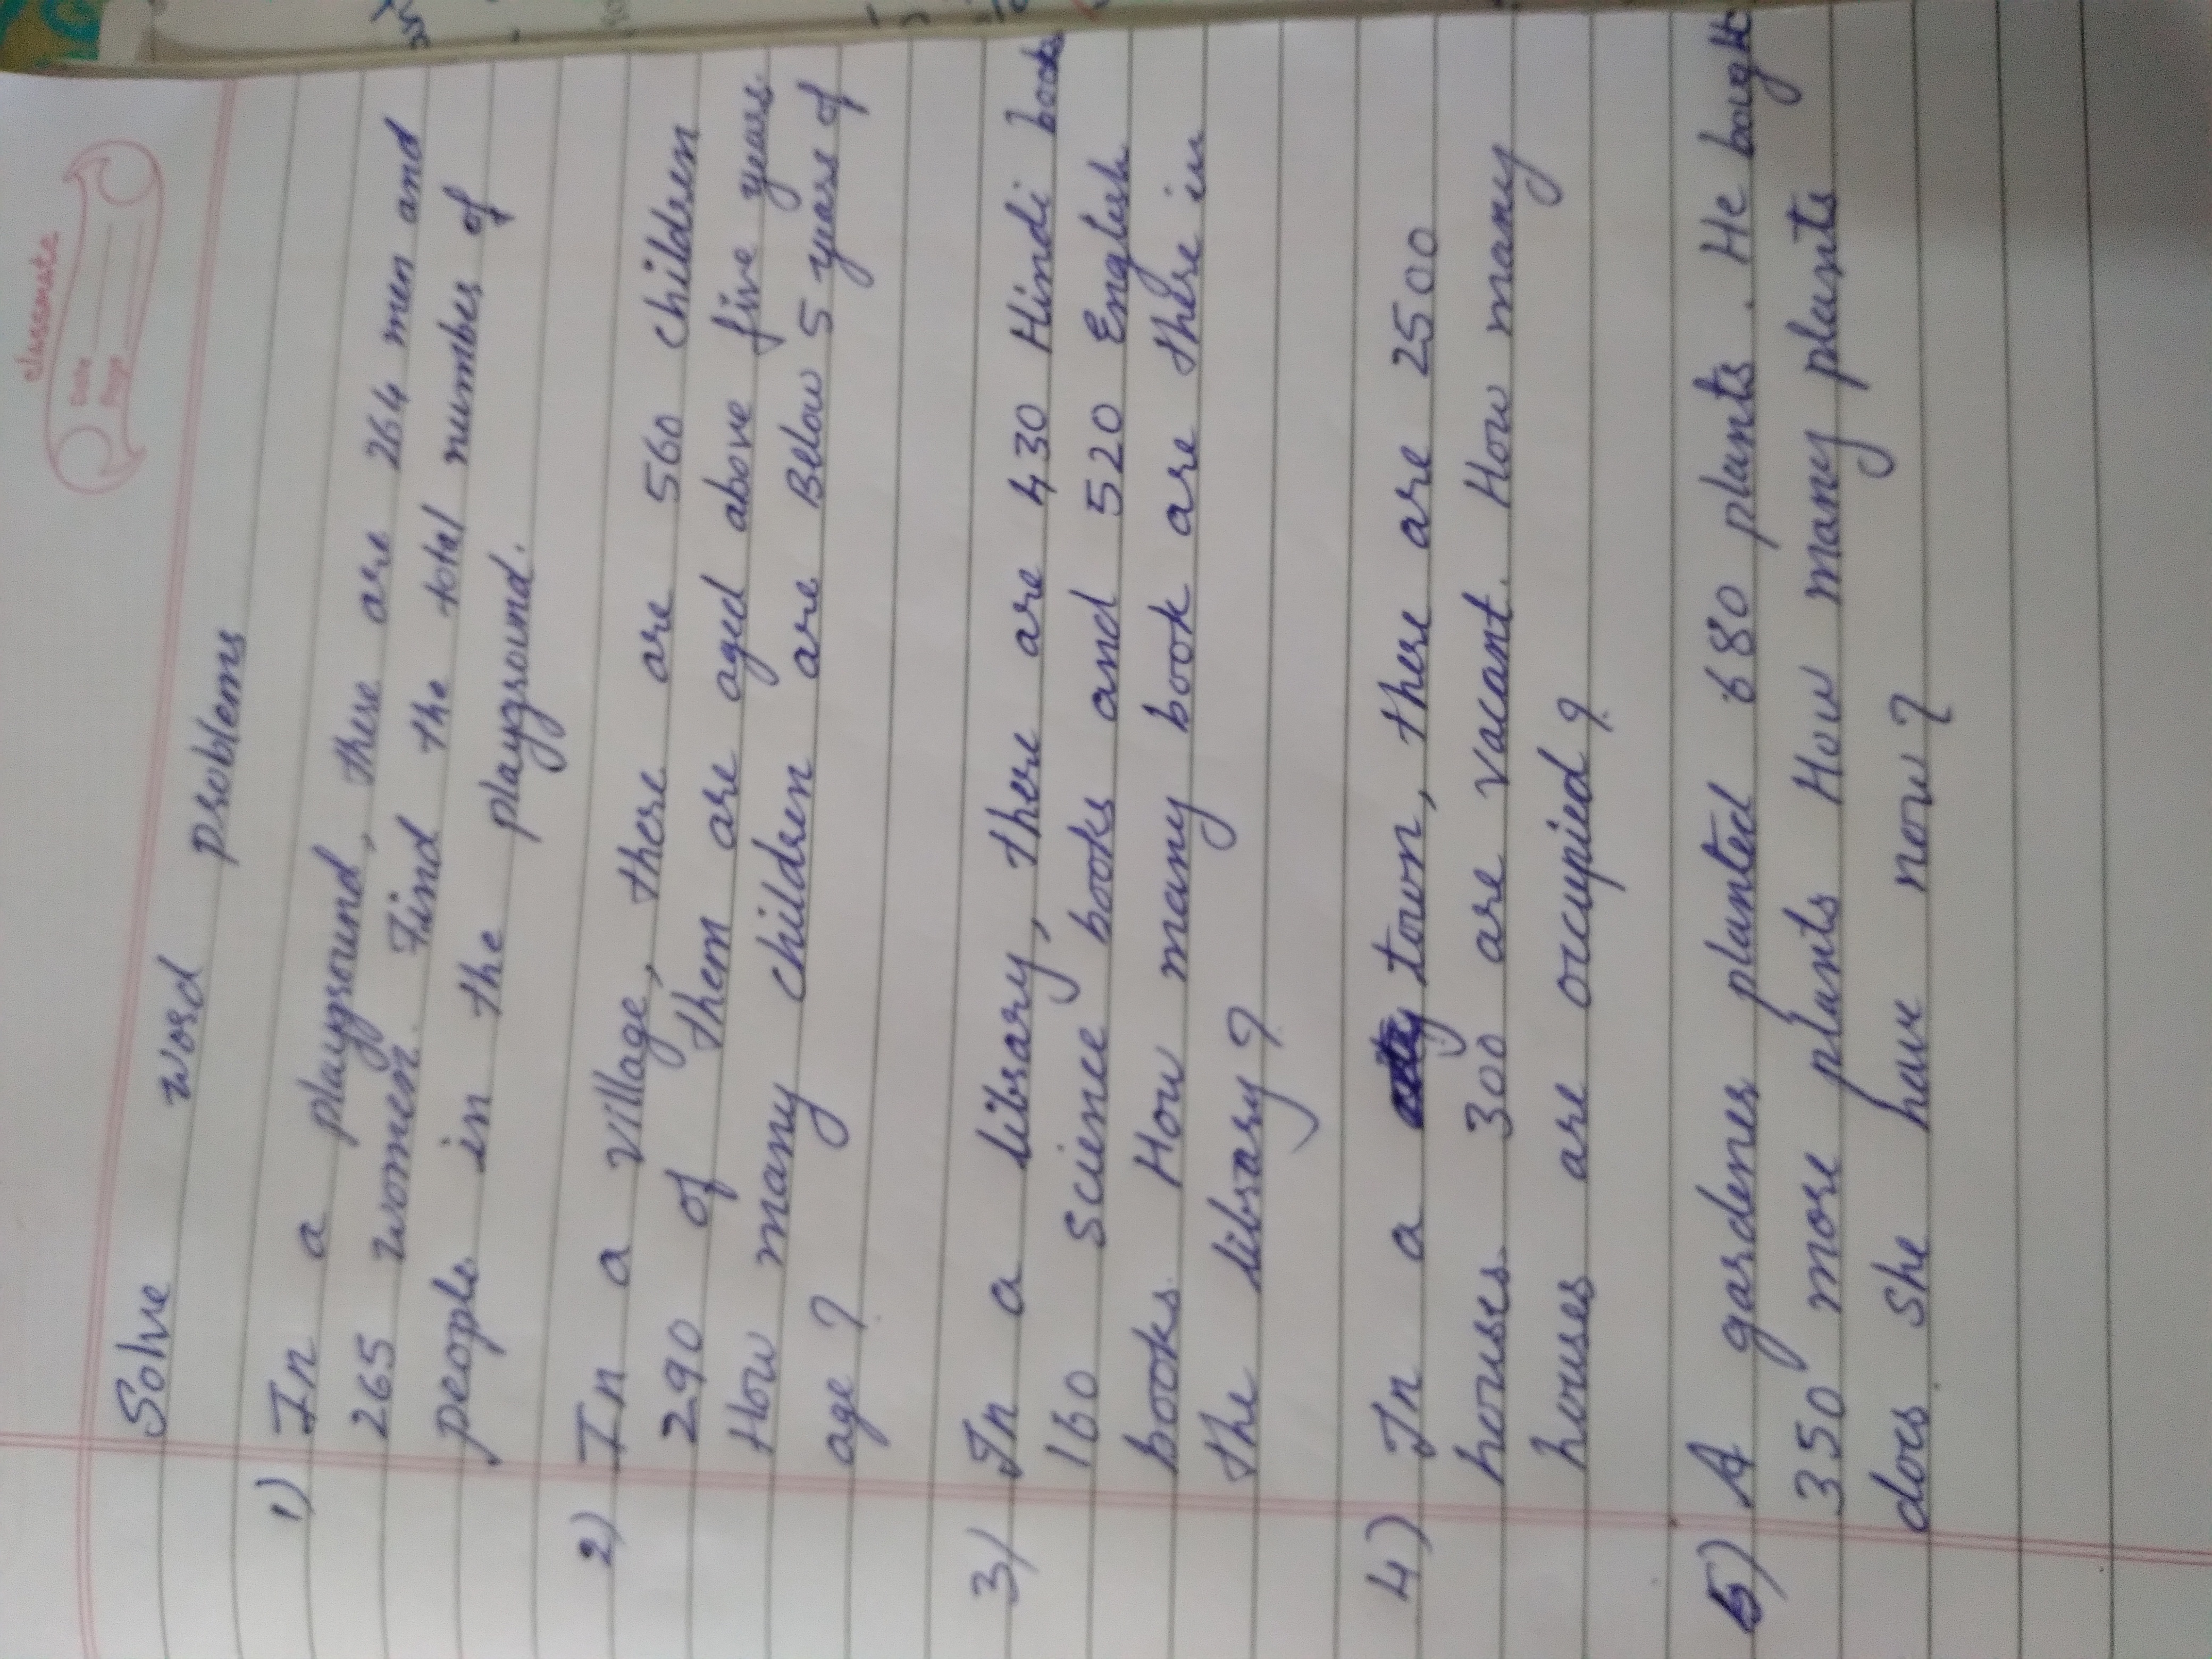 classmate
Date
Page
Solve word problems
1) In a playground, there are 264 men and
265 women. Find the total number of
people in the playground.
2) In a village, there are 560 children
290 of them are aged above five years.
How many children are Below 5 years of
age?
3) In a library, there are 430 Hindi books
160 science books and 520 English
books. How many book are there in
the library?
4) In a town, there are 2500
houses. 300 are vacant. How many
houses are occupied?
5) A gardener planted 680 plants. He bought
350 more plants How many plants
does she have now?